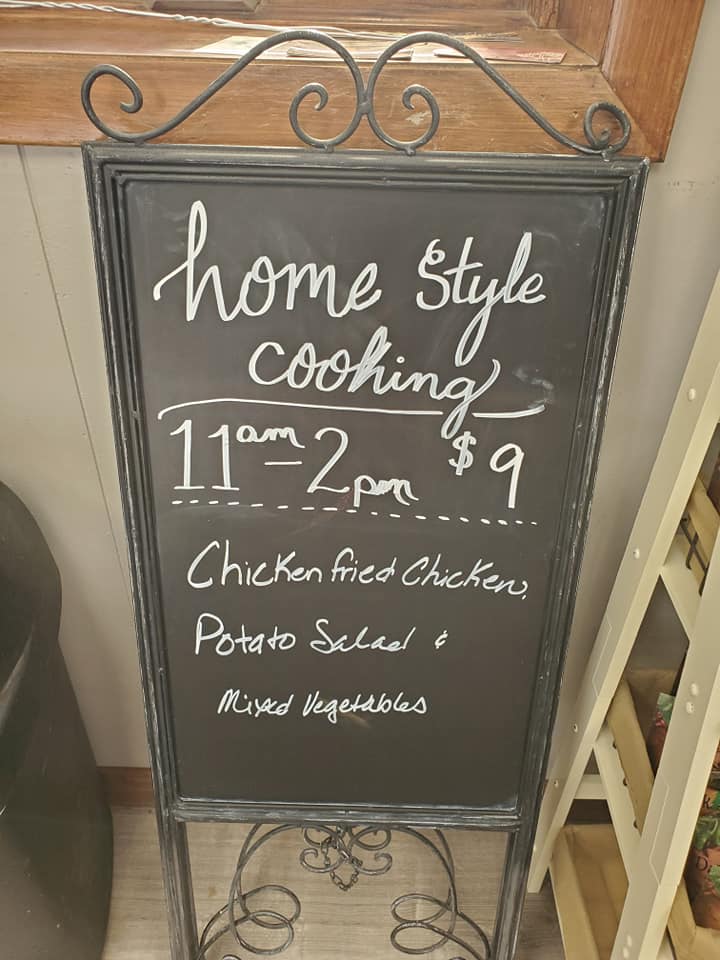 home Style
cooking
11am-2pm $9
Chicken fried Chicken,
Potato Salad &
Mixed Vegetables